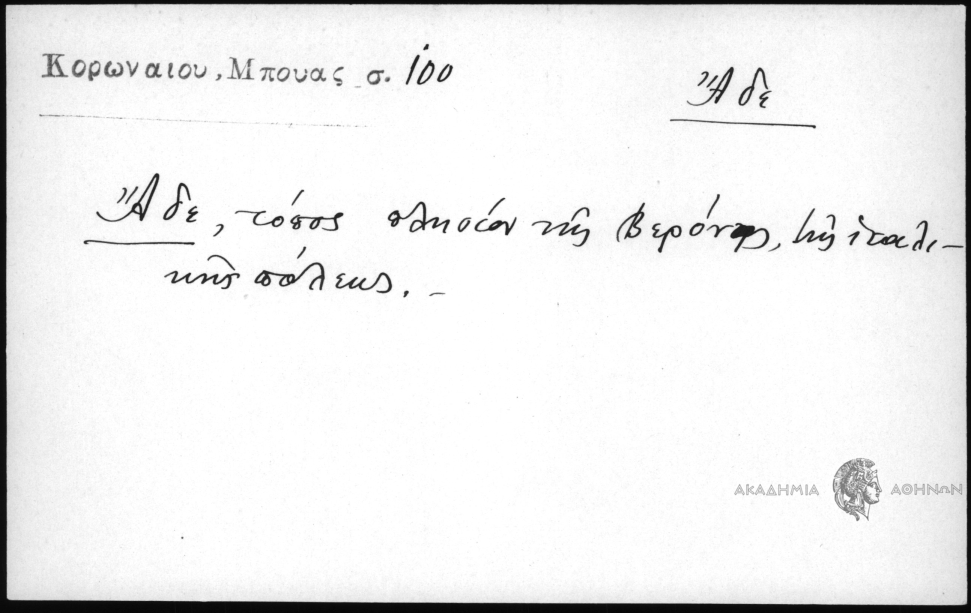 Κορωναιου, Μπουας σ. 100
Ἄδε
Ἄδε, τόπος πλησίον τῆς Βερόνης, τῆς ἰταλι-
κῆς πόλεως. –
ΑΚΑΔΗΜΙΑ ΑΘΗΝΩΝ